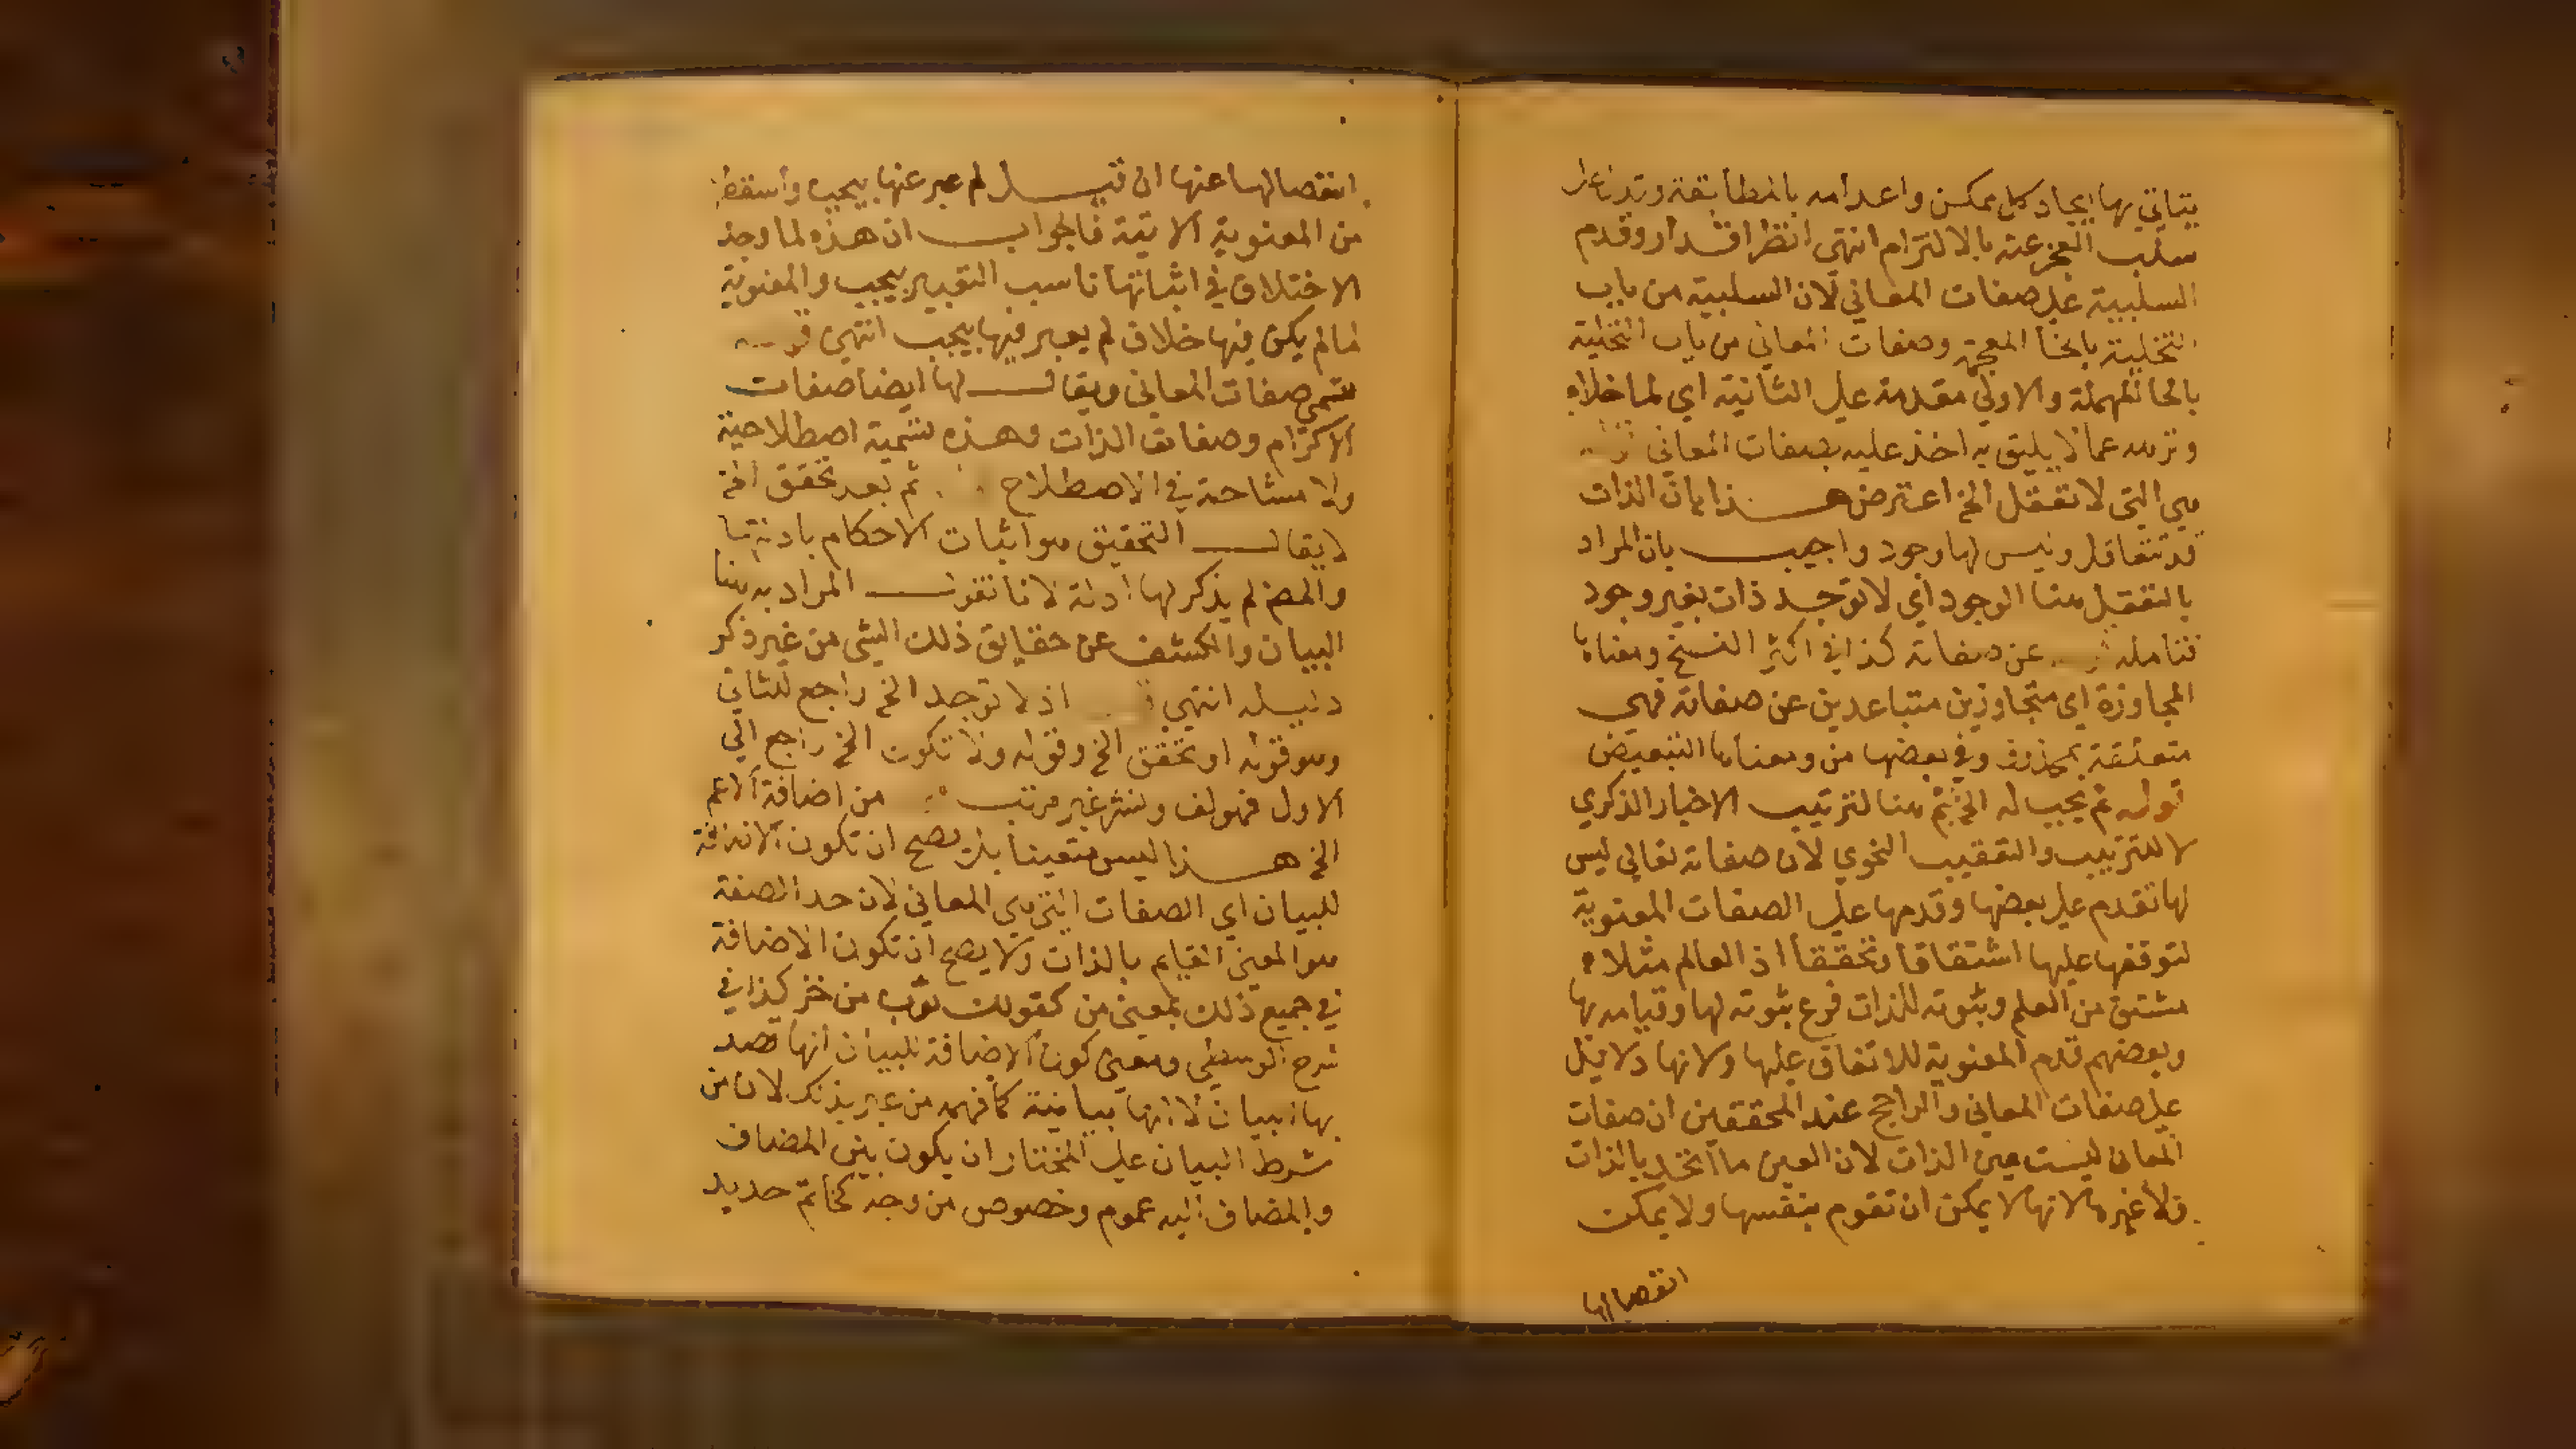 يتاتي بها ايجاد كل ممكن واعدامه بالمطابقة وتدل على
سلب العجز عنه بالالتزام انتهى انظر اقتدار وقدم
السلبية على صفات المعاني لان السلبية من باب
التخلية بالخا المعجمة وصفات المعاني من باب التحلية
بالحا المهملة والاولي مقدمة علي الثانية اي لما خلاه
ونزهه عما لا يليق به اخذ عليه بصفات المعاني
هي التي لا تعقل الخ اعترض هذا بان الذات
قد تتعاقل وليس لها وجود واجيب بان المراد
بالتعقل هنا الوجود اي لا توجد ذات بغير وجود
فتامله عن صفاته كذا في اكثر النسخ ومعناها
المجاوزة اي متجاوزين متباعدين عن صفاته فهي
متعلقة بمحذوف وفي بعضها من ومعناها التبعيض
قوله ثم يجب له الخ ثم هنا لترتيب الاخبار الذكري
لا للترتيب والتعقيب النحوي لان صفاته تعالي ليس
لها تقدم علي بعضها وقدمها علي الصفات المعنوية
لتوقفها عليها اشتقاقا وتحققا اذ العالم مثلا
مشتق من العلم وثبوته للذات فرع ثبوته لها وقيامه بها
وبعضهم قدم المعنوية للاتفاق عليها ولانها دلايل
علي صفات المعاني والراجح عند المحققين ان صفات
المعاني ليست عين الذات لان العين ما اتحد بالذات
ولا غيرها لانها لا يمكن ان تقوم بنفسها ولا يمكن
انفصالها
انفصالها عنها ان قيل لم عبر عنها بيجب واسقطه
من المعنوية الاتية فالجواب ان هذه لما وجد
الاختلاف في اثباتها ناسب التعبير بيجب والمعنوية
لما لم يكن فيها خلاف لم يعبر فيها بيجب انتهي
تسمي صفات المعاني ويقال لها ايضا صفات
الاكرام وصفات الذات وهذه تسمية اصطلاحية
ولا مشاحة في الاصطلاح ثم بعد تحقق الخ
لا يقال التحقيق هو اثبات الاحكام بادلتها
والمص لم يذكر لها ادلة لانا نقول المراد به هنا
البيان والكشف عن حقايق ذلك الشي من غير ذكر
دليله انتهي اذ لا توجد الخ راجع للثاني
وهو قوله او تحقق الخ وقوله ولا تكون الخ راجع الي
الاول فهو لف ونشر غير مرتب من اضافة الاعم
الخ هذا ليس متعينا بل يصح ان تكون الاضافة
للبيان اي الصفات التي هي المعاني لان حد الصفة
هو المعني القايم بالذات ولا يصح ان تكون الاضافة
في جميع ذلك بمعني من كقولك ثوب من خز كذا في
شرح الوسطي ومعني كون الاضافة للبيان انها قصد
بها البيان لا انها بيانية كما فهمه من عبر بذلك لان من
شرط البيان علي المختار ان يكون بين المضاف
والمضاف اليه عموم وخصوص من وجه كخاتم حديد